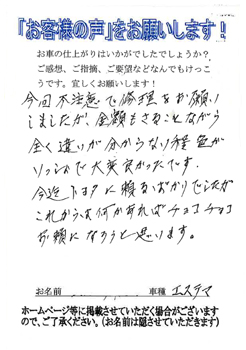 「お客様の声」をお願いします!
お車の仕上がりはいかがでしたでしょうか?
ご感想、ご指摘、ご要望などなんでもけっこ
うです。宜しくお願いします!
今回不注意で修理をお願い
しましたが、金額もさることながら
全く違いが分からない程色が
いっしょで大変良かったです。
今迄トヨタに頼むばかりでしたが
これからは何かあればチョコチョコ
お願いになろうと思います。
お名前
車種 エスティマ
ホームページ等に掲載させていただく場合がございます
ので、ご了承ください。(お名前は隠させていただきます)